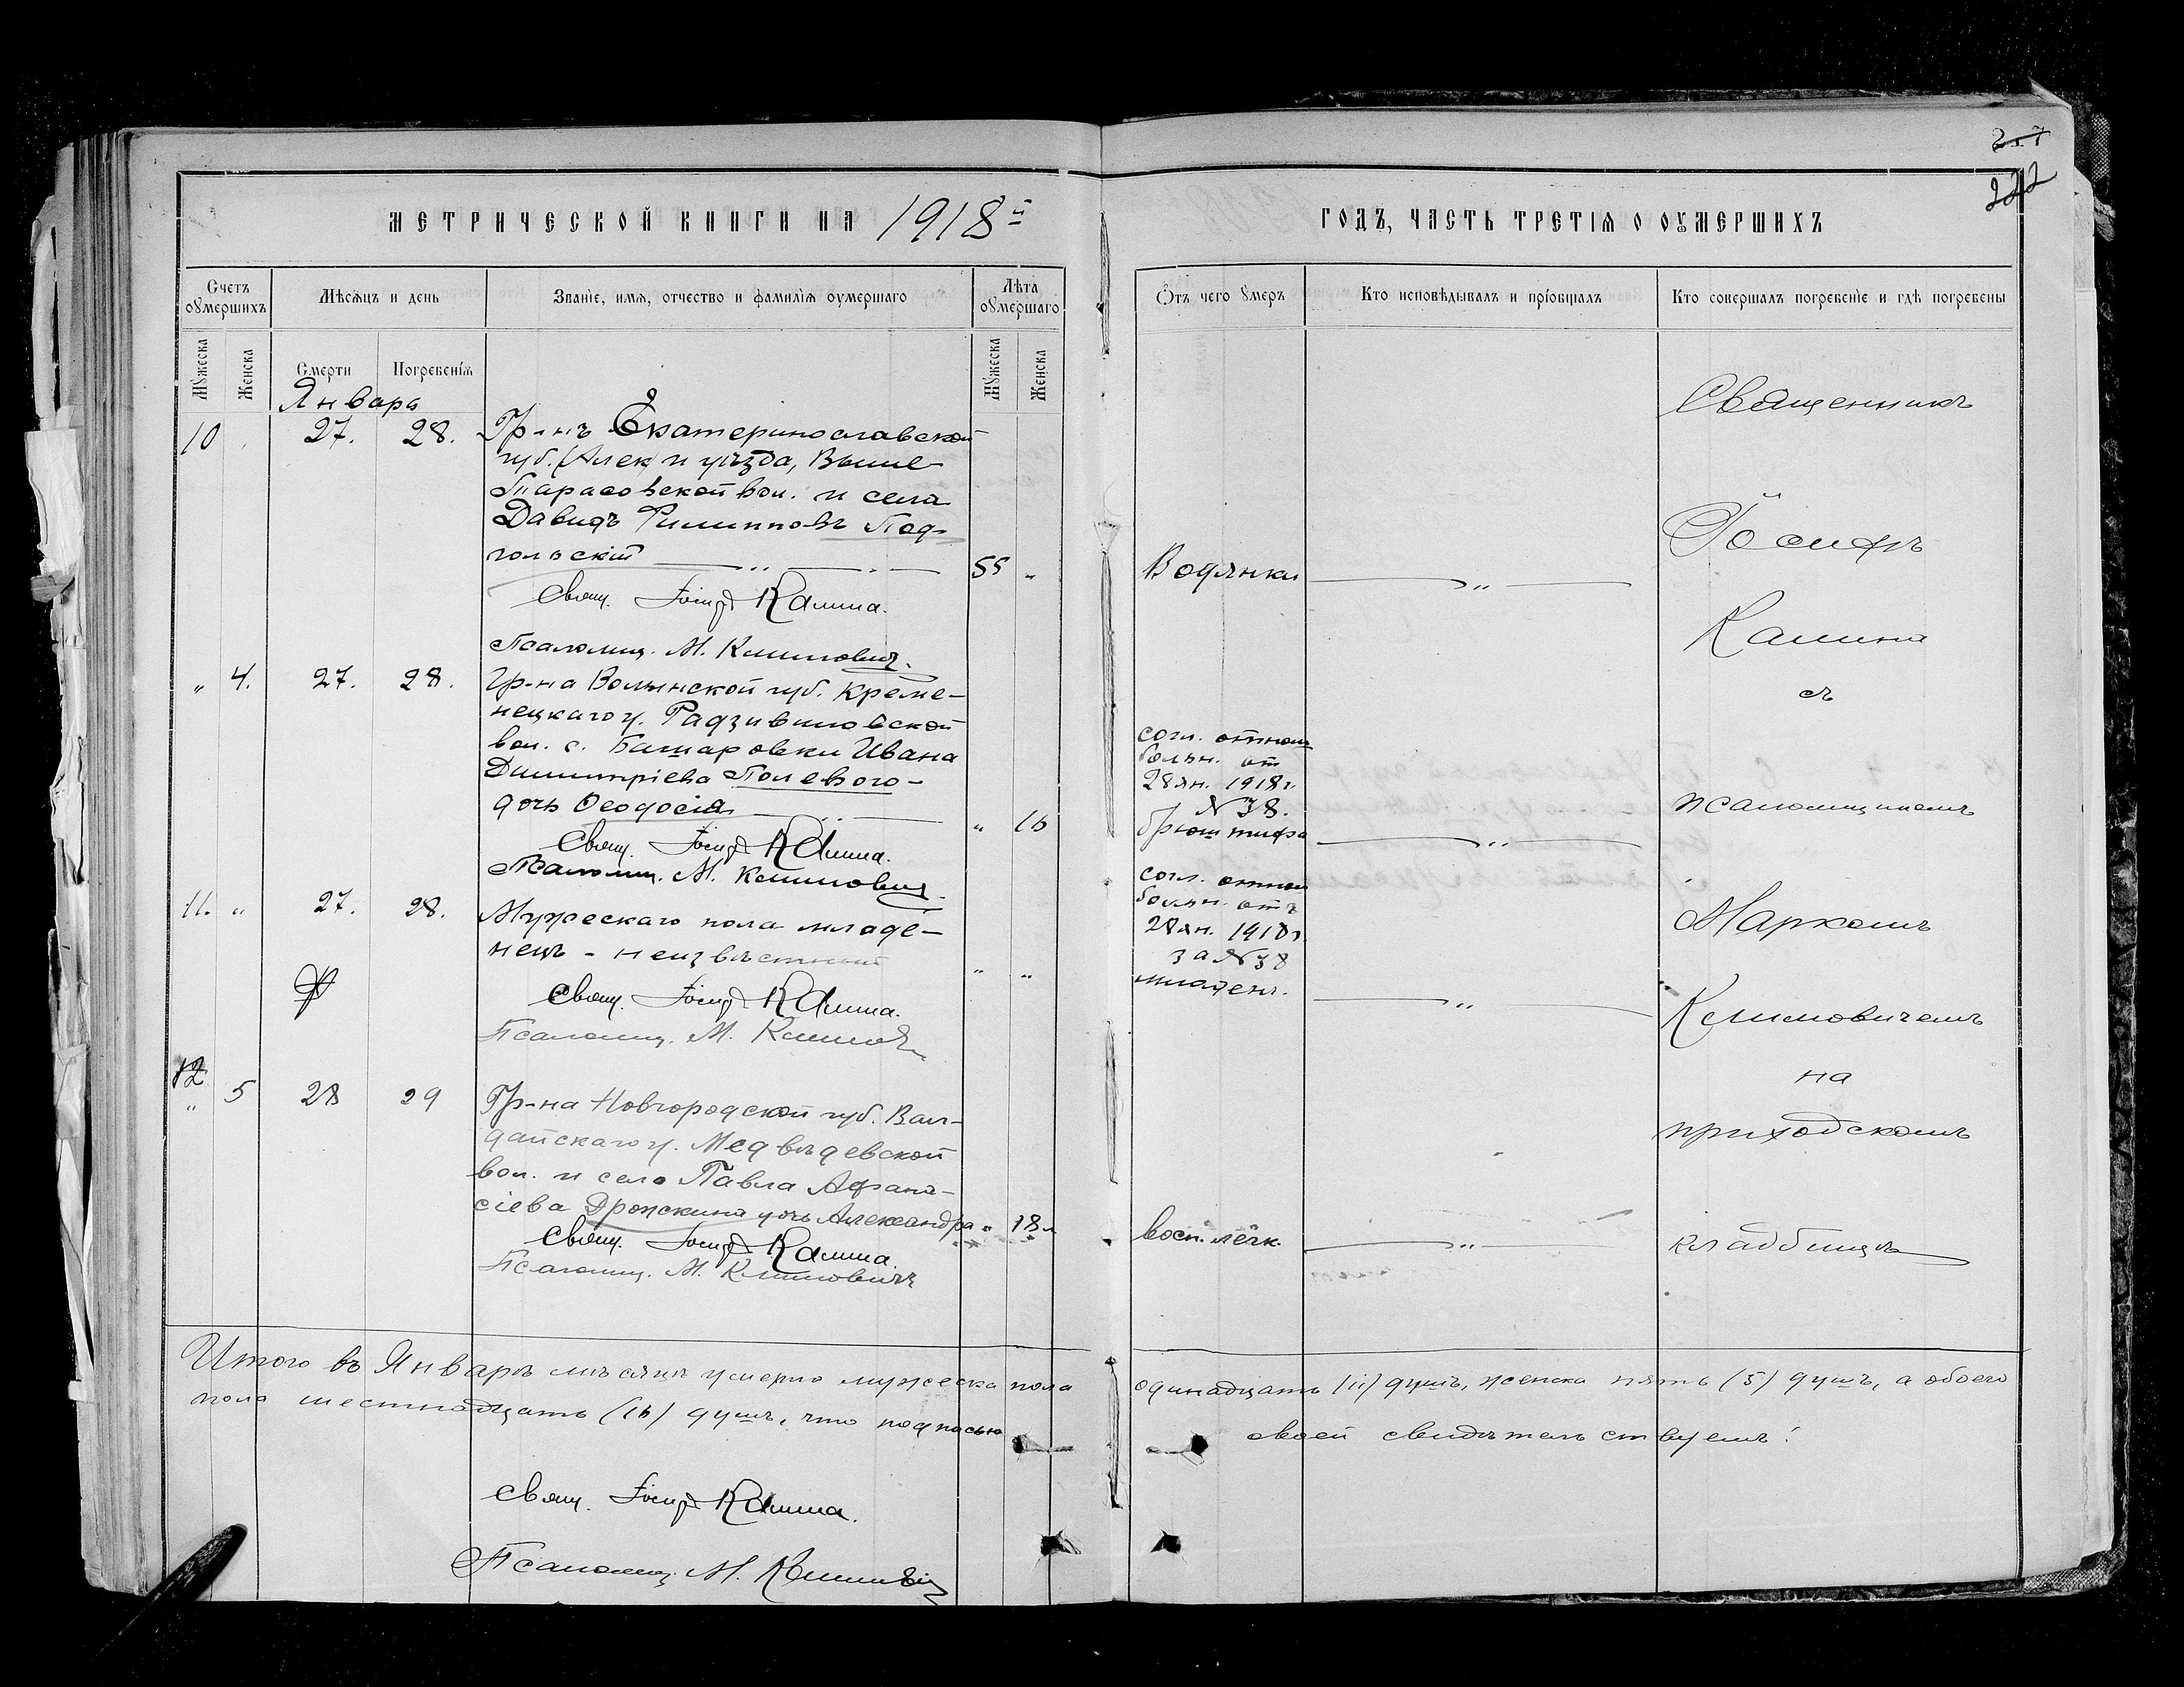 217
222
МЕТРИЧЕСКОЙ КНИГИ НА 1918й
ГОДЪ, ЧАСТЬ ТРЕТІЯ О ОУМЕРШИХЪ
Счетъ оумершихъ
Мѣсяцъ и день
Званіе, имя, отчество и фамилія оумершаго
Лѣта оумершаго
Отъ чего умеръ
Кто исповѣдывалъ и пріобщалъ
Кто совершалъ погребеніе и гдѣ погребены
Мужеска
Женска
Смерти
Погребенія
Мужеска
Женска
Января
10 27. 28. Гр-нъ Екатеринославской
губ. (Алек) и уѣзда, Выше-
Тарасовской вол. и села
Давидъ Филипповъ Под-
гольскій 55 " Водянки
Свящ. Іосифъ Калина.
Псаломщ. М. Климовичъ.
" 4. 27. 28. Гр-на Волынской губ. Креме-
нецкаго у. Радзивиловской
вол. с. Башаровки Ивана
Димитріева Полевого -
дочь Ѳеодосія " 16
согл. отнош
больн. от
28 ян. 1918 г.
№ 38.
брюш тифа
Свящ. Іосифъ Калина.
Псаломщ. М. Климовичъ.
11. " 27. 28. Мужескаго пола младе-
нецъ - неизвѣстный " "
согл. отнош
больн. отъ
28 ян. 1918 г.
за № 38
младен.
Свящ. Іосифъ Калина.
Псаломщ. М. Климов
12
" 5 28 29 Гр-на Новгородской губ. Вал-
дайскаго у. Медвѣдевской
вол. и села Павла Афана-
сіева Дрожскина дочь Александра " 18 л
восп. лёгк.
Свящ. Іосифъ Калина.
Псаломщ. М. Климовичъ
Священникъ
Іосифъ
Калина
съ
псаломщикомъ
Маркомъ
Климовичемъ
на
приходскомъ
кладбищѣ
Итого въ Январѣ мѣсяцѣ умерло мужеска пола одинадцать (11) душъ, женска пять (5) душъ, а обоего
пола шестнадцать (16) душъ, что подписью своей свидѣтельствуемъ!
Свящ. Іосифъ Калина.
Псаломщ. М. Климовичъ